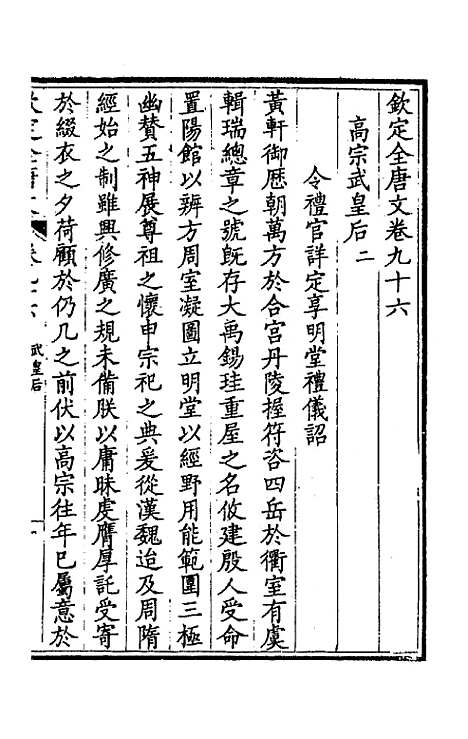 欽定全唐文卷九十六
高宗武皇后二
令禮官詳定享明堂禮儀詔
黃軒御歷朝萬方於合宮丹陵握符咨四岳於衢室有虞
輯瑞總章之號旣存大禹錫珪重屋之名攸建殷人受命
置陽館以辨方周室凝圖立明堂以經野用能範圍三極
幽贊五神展尊祖之懷申宗祀之典爰從漢魏迨及周隋
經始之制雖興修廣之規未備朕以庸昧虔膺厚託受寄
於綴衣之夕荷顧於仍几之前伏以高宗往年已屬意於
欽定全唐文 卷九十六 武皇后 一